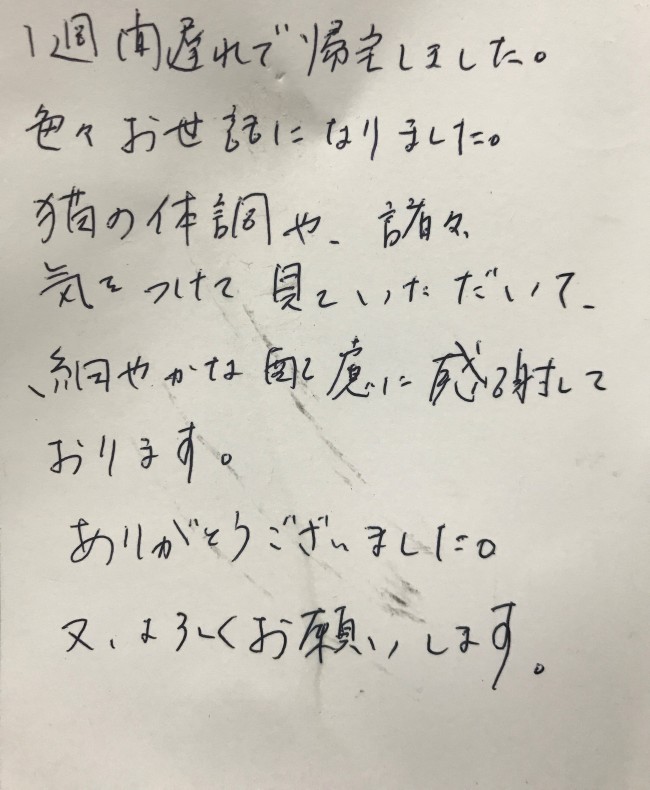 1週間遅れで帰宅しました。
色々お世話になりました。
猫の体調や、諸々、
気をつけて見ていただいて、
細やかな配慮に感謝して
おります。
ありがとうございました。
又、よろしくお願いします。